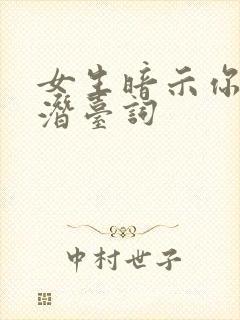 女生暗示你
潛臺詞
中村世子